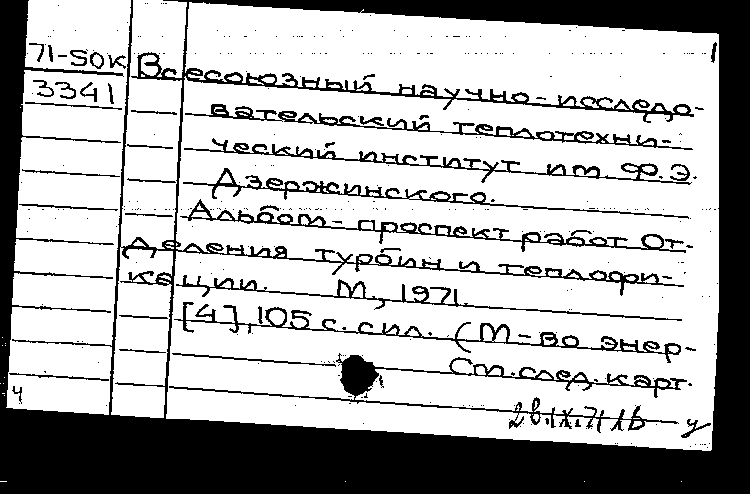 1
71-SOK Всесоюзный научно-исследо-
3341 вательский теплотехни-
ческий институт им. Ф.Э.
Дзержинского.
Альбом-проспект работ От-
деления турбин и теплофи-
кации. М., 1971.
[4], 105 с. с ил. (М-во энер-
См. след. карт.
28.IX.71
4